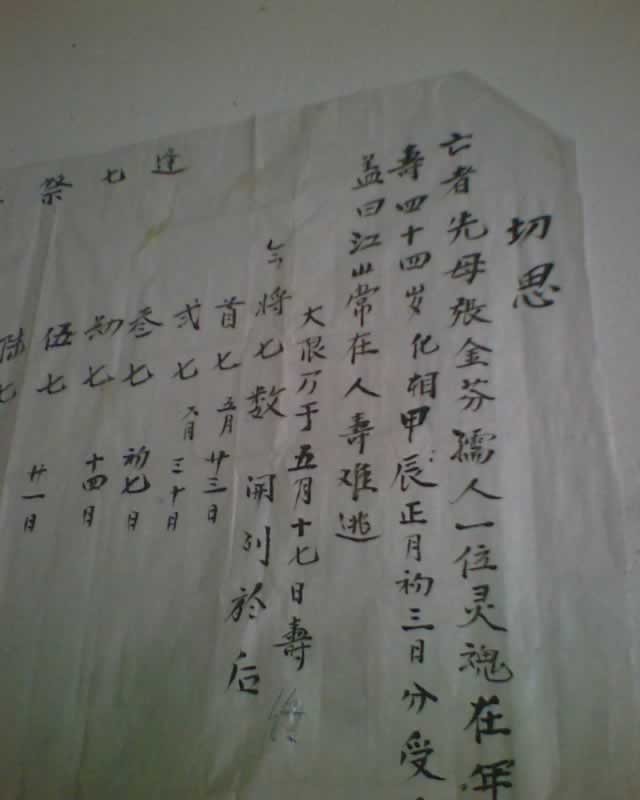 切思
亡者先母张金芬孺人一位灵魂在年
寿四十四岁化相甲辰正月初三日分受
益曰江山常在人寿难逃
大限万于五月十七日寿
今将七数開列於后
首七 五月廿三日
弍七 六月三十月
叁七 初七日
七 十四日
伍七 廿一日
陆七
逢七祭